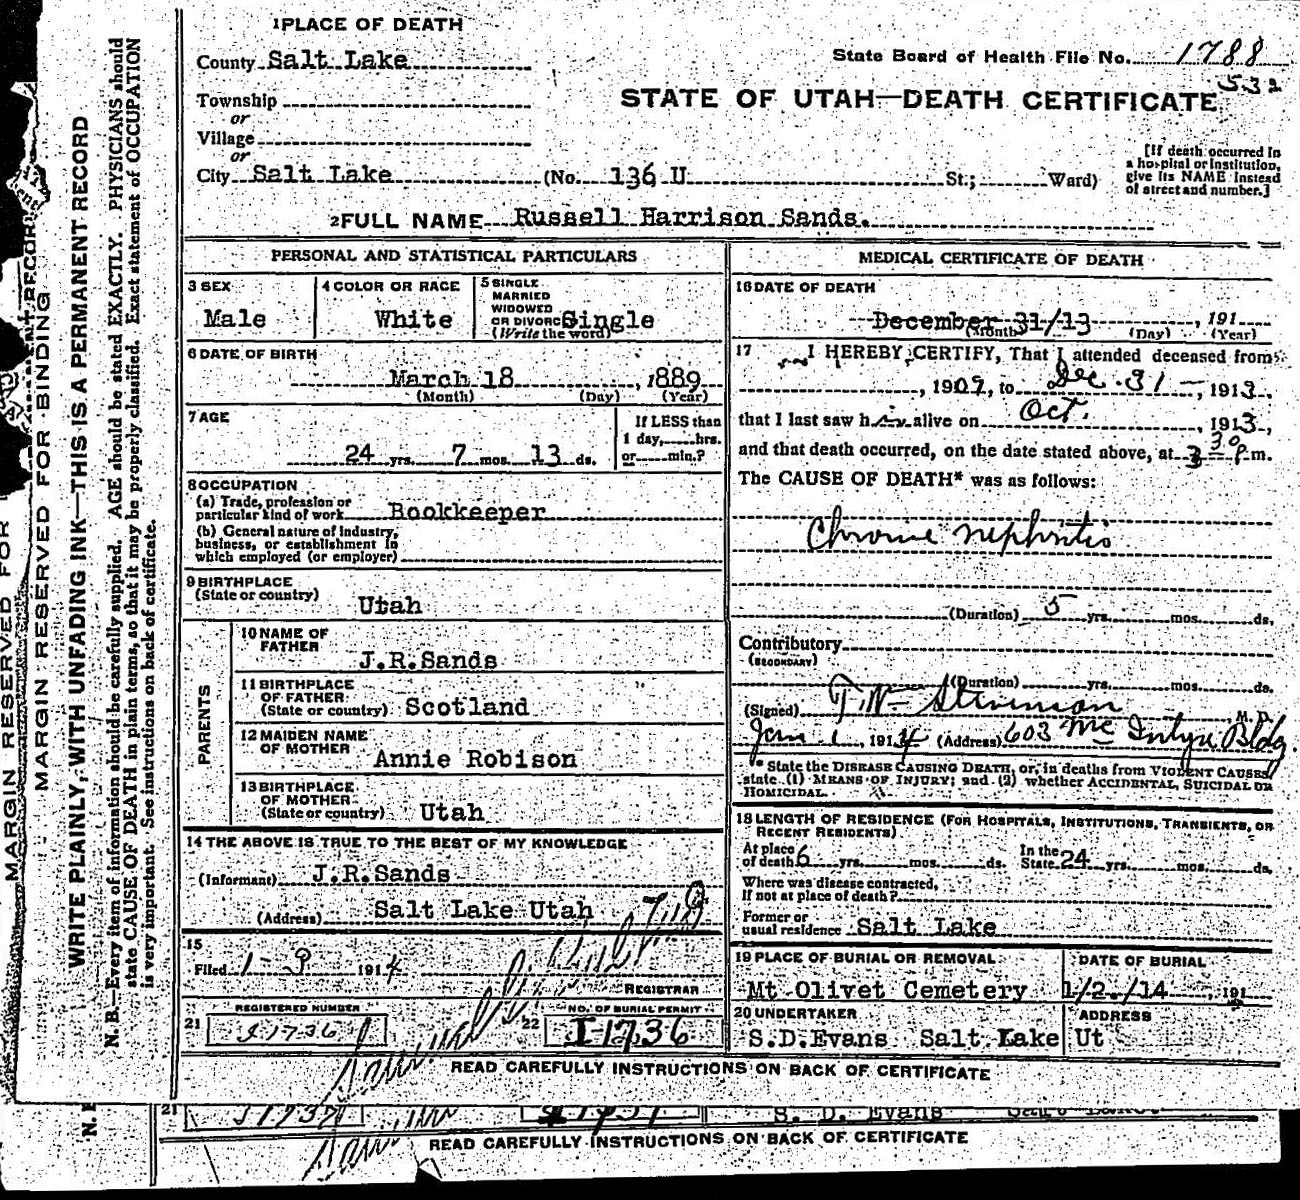 1 PLACE OF DEATH
County Salt Lake
State Board of Health File No. 1788
532
Township
or
Village
or
STATE OF UTAH—DEATH CERTIFICATE
City Salt Lake (No. 136 U St.; Ward)
[If death occurred in
a hospital or institution,
give its NAME instead
of street and number.]
2 FULL NAME Russell Harrison Sands.
PERSONAL AND STATISTICAL PARTICULARS
3 SEX
Male
4 COLOR OR RACE
White
5 SINGLE
MARRIED
WIDOWED
OR DIVORCED
(Write the word)
Single
6 DATE OF BIRTH
March 18, 1889
(Month) (Day) (Year)
7 AGE
24 yrs. 7 mos. 13 ds.
If LESS than
1 day, hrs.
or min.?
8 OCCUPATION
(a) Trade, profession or
particular kind of work Bookkeeper
(b) General nature of Industry,
business, or establishment in
which employed (or employer)
9 BIRTHPLACE
(State or country)
Utah
PARENTS
10 NAME OF
FATHER
J.R.Sands
11 BIRTHPLACE
OF FATHER
(State or country) Scotland
12 MAIDEN NAME
OF MOTHER
Annie Robison
13 BIRTHPLACE
OF MOTHER
(State or country) Utah
14 THE ABOVE IS TRUE TO THE BEST OF MY KNOWLEDGE
(Informant) J.R.Sands
(Address) Salt Lake Utah
15
Filed 1-9 1914
REGISTRAR
REGISTERED NUMBER
21 I1736
NO. OF BURIAL PERMIT
22 I1736
MEDICAL CERTIFICATE OF DEATH
16 DATE OF DEATH
December 31/13, 191
(Month) (Day) (Year)
17 I HEREBY CERTIFY, That I attended deceased from
, 1909, to Dec. 31 - 1913,
that I last saw him alive on Oct. , 1913,
and that death occurred, on the date stated above, at 3 30 P m.
The CAUSE OF DEATH* was as follows:
Chronic nephritis
(Duration) 5 yrs. mos. ds.
Contributory
(SECONDARY)
(Duration) yrs. mos. ds.
(Signed) T.W. Stevenson M. D.
Jan 1, 1914 (Address) 603 McIntyre Bldg.
* State the DISEASE CAUSING DEATH, or, in deaths from VIOLENT CAUSES,
state (1) MEANS OF INJURY; and (2) whether ACCIDENTAL, SUICIDAL OR
HOMICIDAL.
18 LENGTH OF RESIDENCE (FOR HOSPITALS, INSTITUTIONS, TRANSIENTS, OR
RECENT RESIDENTS)
At place
of death 6 yrs. mos. ds.
In the
State 24 yrs. mos. ds.
Where was disease contracted,
If not at place of death?
Former or
usual residence Salt Lake
19 PLACE OF BURIAL OR REMOVAL
Mt Olivet Cemetery
DATE OF BURIAL
1/2./14, 191
20 UNDERTAKER
S.D.Evans Salt Lake
ADDRESS
Ut
READ CAREFULLY INSTRUCTIONS ON BACK OF CERTIFICATE
21
S. D. Evans
READ CAREFULLY INSTRUCTIONS ON BACK OF CERTIFICATE
MARGIN RESERVED FOR
MARGIN RESERVED FOR BINDING
WRITE PLAINLY, WITH UNFADING INK—THIS IS A PERMANENT RECORD
N. B.—Every item of information should be carefully supplied. AGE should be stated EXACTLY. PHYSICIANS should
state CAUSE OF DEATH in plain terms, so that it may be properly classified. Exact statement of OCCUPATION
is very important. See instructions on back of certificate.